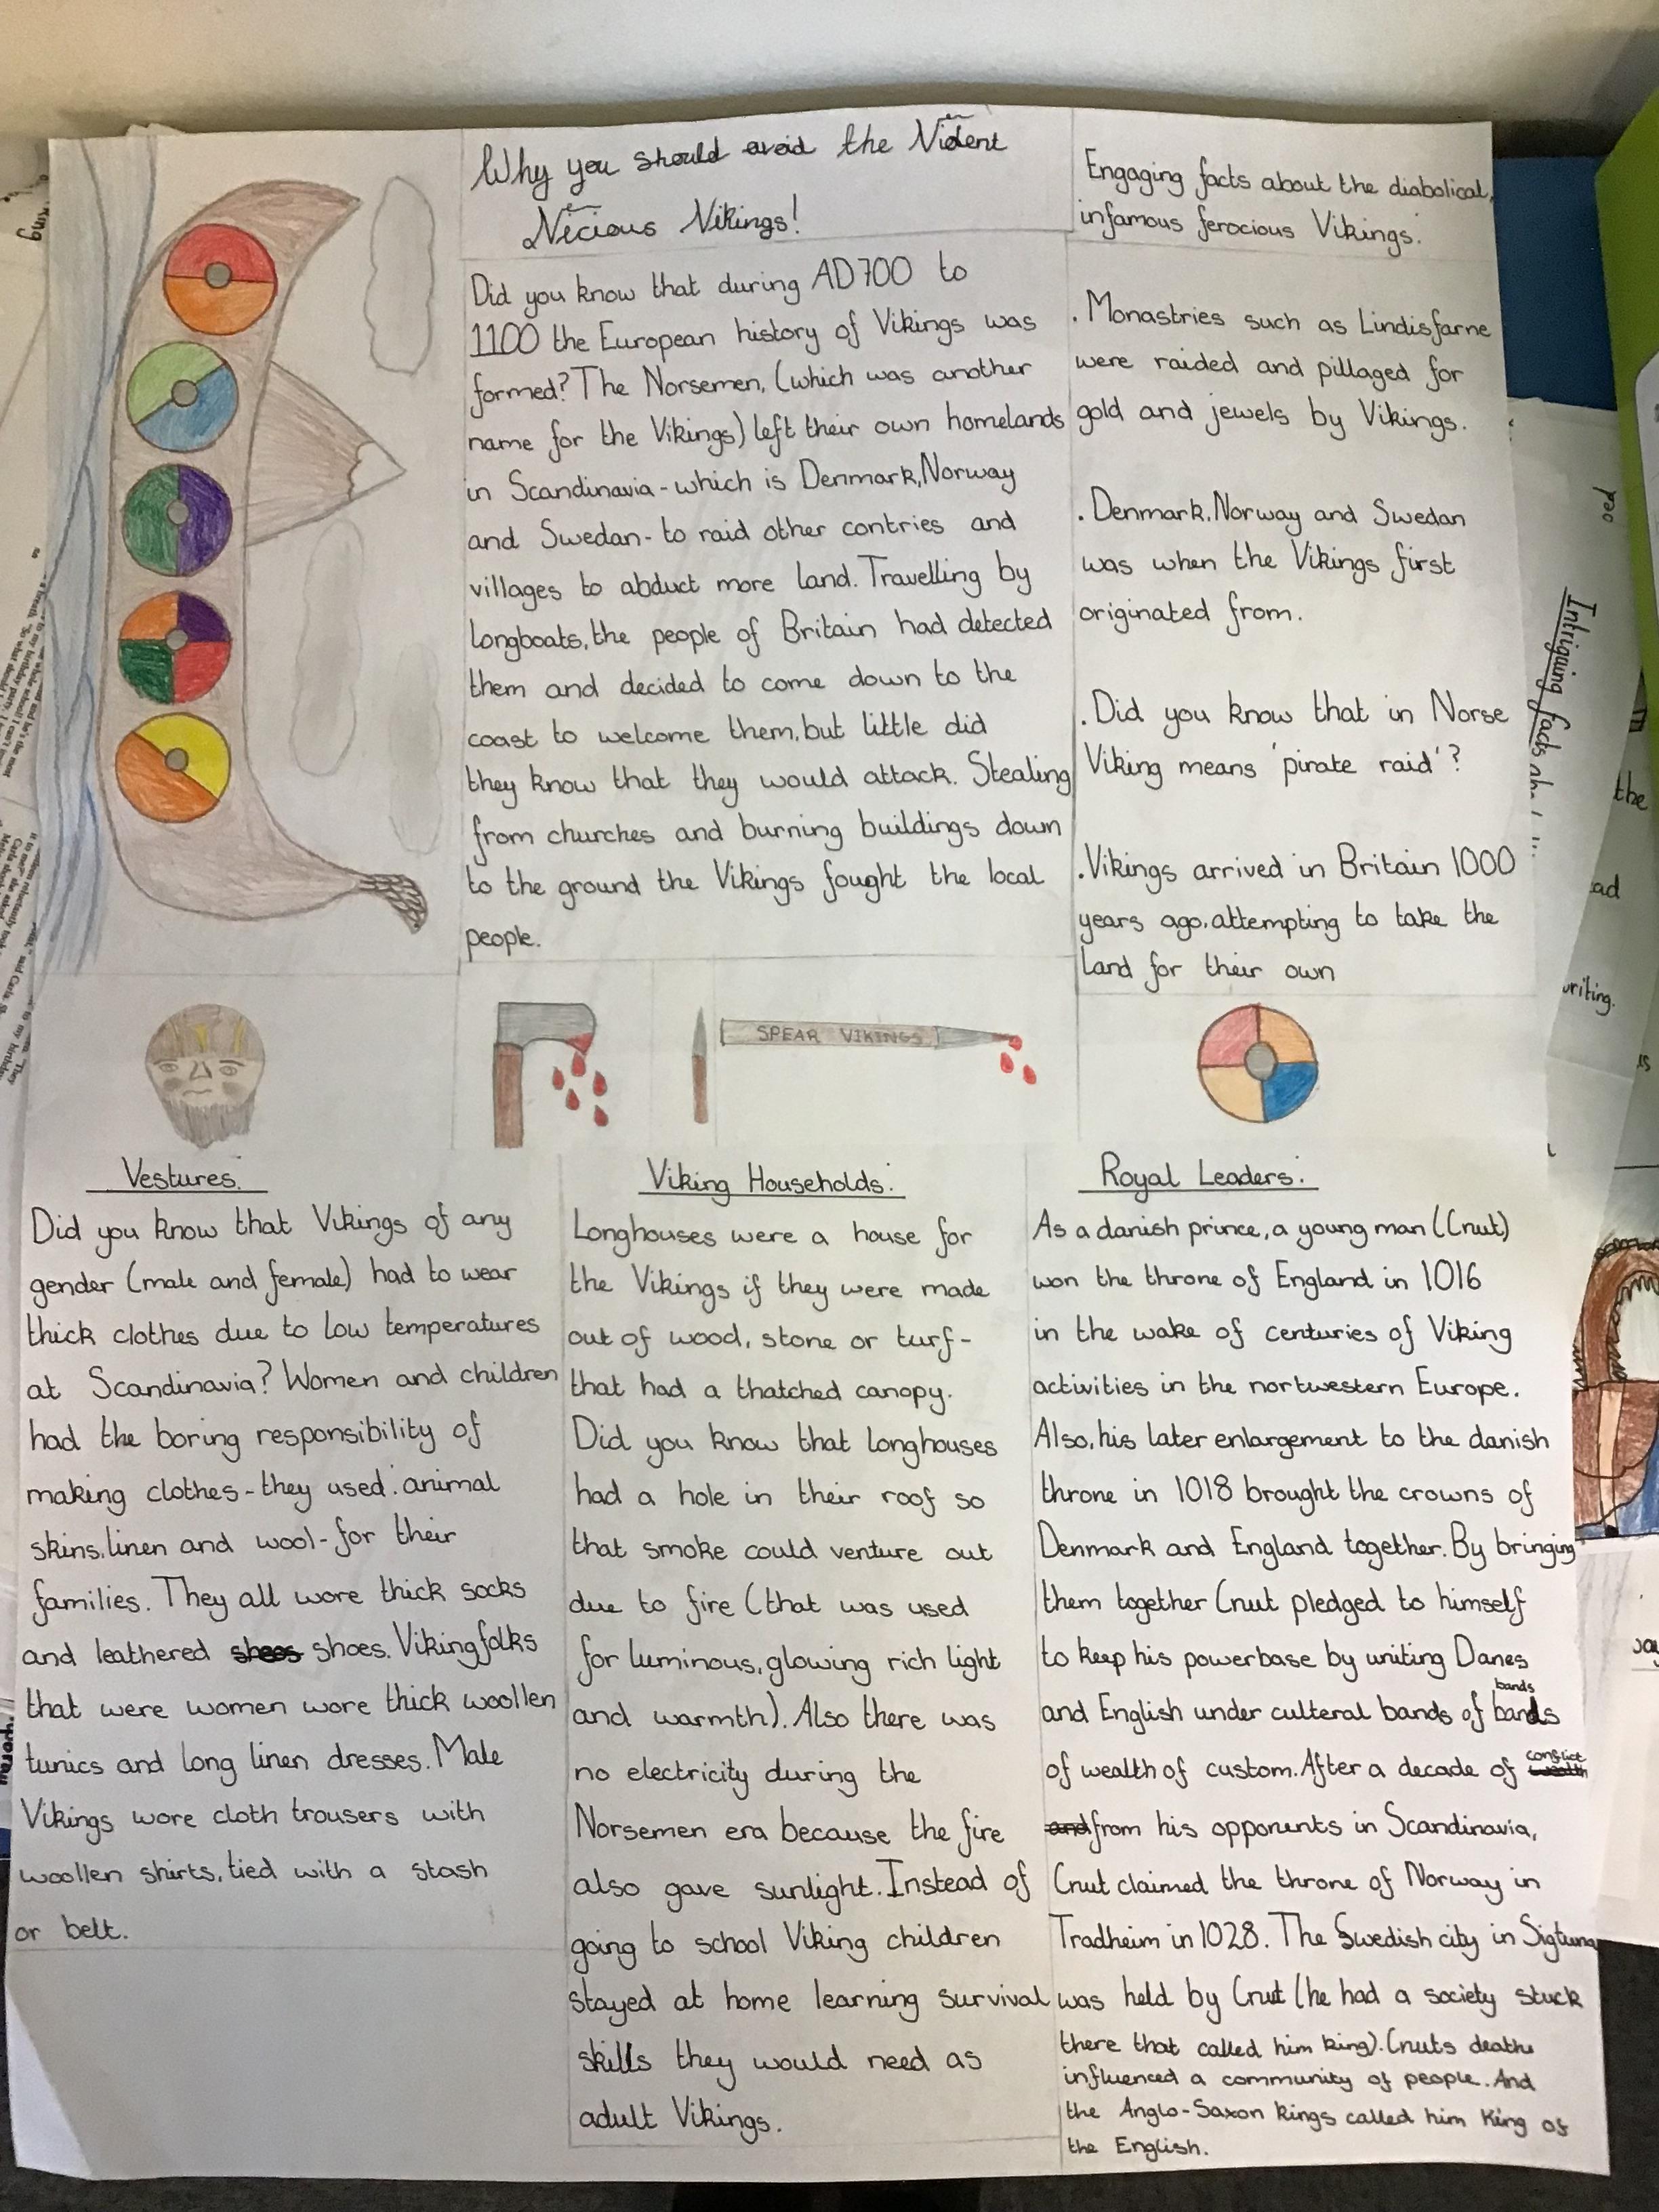 Why you should avoid the Violent
Vicious Vikings!
Did you know that during AD700 to
1100 the European history of Vikings was
formed? The Norsemen, (which was another
name for the Vikings) left their own homelands
in Scandinavia - which is Denmark, Norway
and Swedan - to raid other contries and
villages to abduct more land. Travelling by
longboats, the people of Britain had detected
them and decided to come down to the
coast to welcome them, but little did
they know that they would attack. Stealing
from churches and burning buildings down
to the ground the Vikings fought the local
people.
Engaging facts about the diabolical,
infamous ferocious Vikings.
. Monastries such as Lindisfarne
were raided and pillaged for
gold and jewels by Vikings.
. Denmark, Norway and Swedan
was when the Vikings first
originated from.
. Did you know that in Norse
Viking means 'pirate raid'?
. Vikings arrived in Britain 1000
years ago, attempting to take the
land for their own
SPEAR VIKINGS
Vestures:
Did you know that Vikings of any
gender (male and female) had to wear
thick clothes due to low temperatures
at Scandinavia? Women and children
had the boring responsibility of
making clothes - they used: animal
skins, linen and wool - for their
families. They all wore thick socks
and leathered shoes. Viking folks
that were women wore thick woollen
tunics and long linen dresses. Male
Vikings wore cloth trousers with
woollen shirts, tied with a stash
or belt.
Viking Households:
Longhouses were a house for
the Vikings if they were made
out of wood, stone or turf -
that had a thatched canopy.
Did you know that longhouses
had a hole in their roof so
that smoke could venture out
due to fire (that was used
for luminous, glowing rich light
and warmth). Also there was
no electricity during the
Norsemen era because the fire
also gave sunlight. Instead of
going to school Viking children
stayed at home learning survival
skills they would need as
adult Vikings.
Royal Leaders:
As a danish prince, a young man (Cnut)
won the throne of England in 1016
in the wake of centuries of Viking
activities in the nortwestern Europe.
Also, his later enlargement to the danish
throne in 1018 brought the crowns of
Denmark and England together. By bringing
them together Cnut pledged to himself
to keep his powerbase by uniting Danes
bands
and English under culteral bands of bands
of wealth of custom. After a decade of conflict
from his opponents in Scandinavia,
Cnut claimed the throne of Norway in
Tradheim in 1028. The Swedish city in Sigtuna
was held by Cnut (he had a society stuck
there that called him king). Cnuts deaths
influenced a community of people. And
the Anglo-Saxon kings called him King of
the English.
Intriguing facts
the
writing.